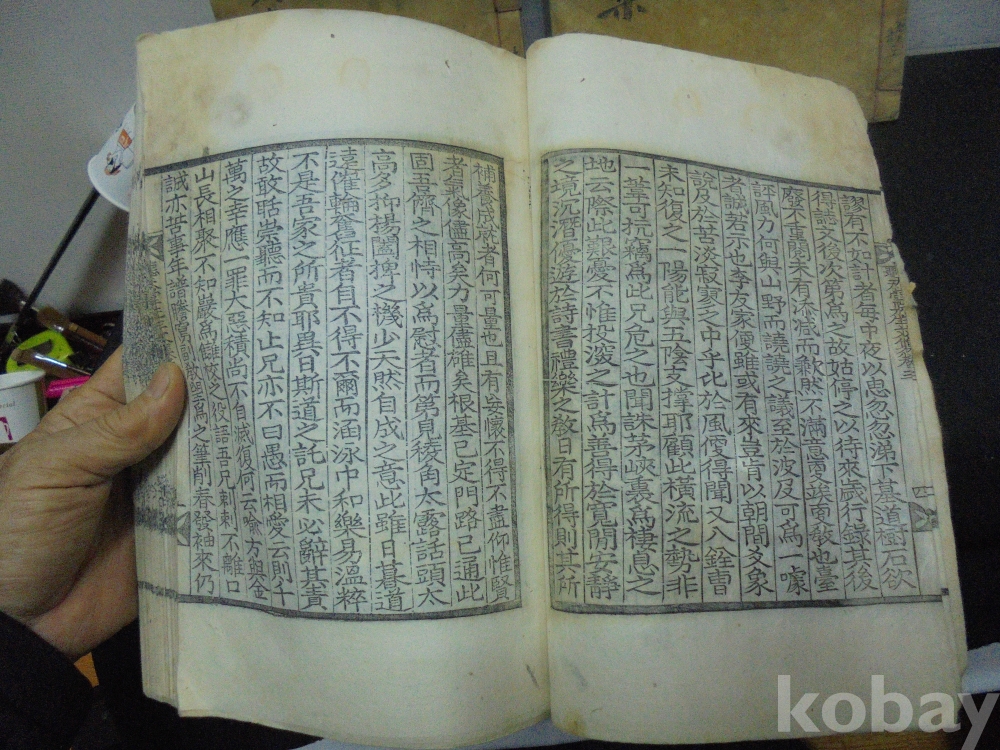 謬有不如計者每中夜以思忽忽涕下墓道樹石欲
得諸文後次第爲之故姑停之以待來歲行錄其後
廢不重關未有添減而歉然不滿意更竢更發也臺
評風力何與山野而譊譊之議至於波及可爲一噱
者誠若示也李友家便雖或有來豈肯以朝聞爻象
說及於苦淡寂寥之中乎比於風便得聞又八銓曹
未知復之一陽能與五陰支撑耶顧此橫流之勢非
一葦可抗竊爲此兄危之也聞誅茅峽裏爲棲息之
地云際此艱憂不惟投浚之計爲善得於寬閒安靜
之境沉潛優遊於詩書禮樂之教日有所得則其所
補養成就者何可量也且有妄懷不得不盡仰惟賢
者氣像儘高矣力量儘雄矣根基已定門路已通此
固吾儕之相恃以爲慰者而第見稜角太露話頭太
高多抑揚闔捭之機少天然自成之意此雖日暮道
遠催輪奮征者自不得不爾而涵泳中和樂易溫粹
不是吾家之所貴耶異日斯道之託兄未必辭其責
故敢聒崇聽而不知止兄亦不曰愚而相愛云則千
萬之幸應一罪大惡積尚不自滅復何云喩方與金
山長相聚不知嚴爲讎校之役語吾兄刺刺不離口
誠亦苦事年譜 爲之筆削春發袖來仍
kobay